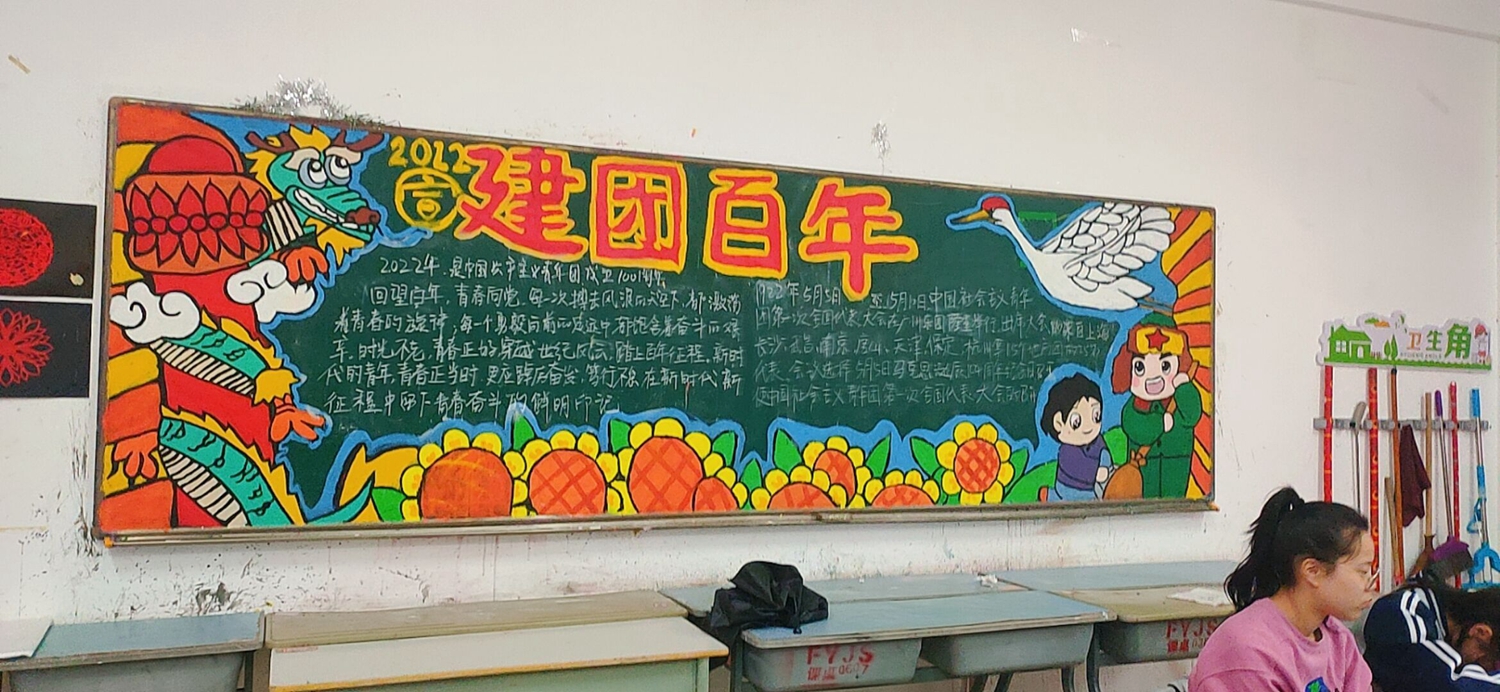 2012
言
建团百年
2022年,是中国共产主义青年团成立100周年
回望百年,青春同党,每一次搏击风浪的天空下,都激荡
着青春的旋律,每一个勇毅向前的足迹中都饱含着奋斗的
年,时光不老,青春正好,穿越世纪风云,踏上百年征程,新时
代的青年,青春正当时,更应踔厉奋发,笃行不怠,在新时代新
征程中留下青春奋斗的鲜明印记
1922年5月5日至5月10日中国社会主义青年
团第一次全国代表大会在广州东园举行,出席大会的来自上海
长沙、武昌、南京、唐山、天津、保定、杭州等15个地方团的25名
代表,会议选择5月5日马克思诞辰
中国社会主义青年团第一次全国代表大会
卫生角
FYJS
课桌
FYJS
课桌